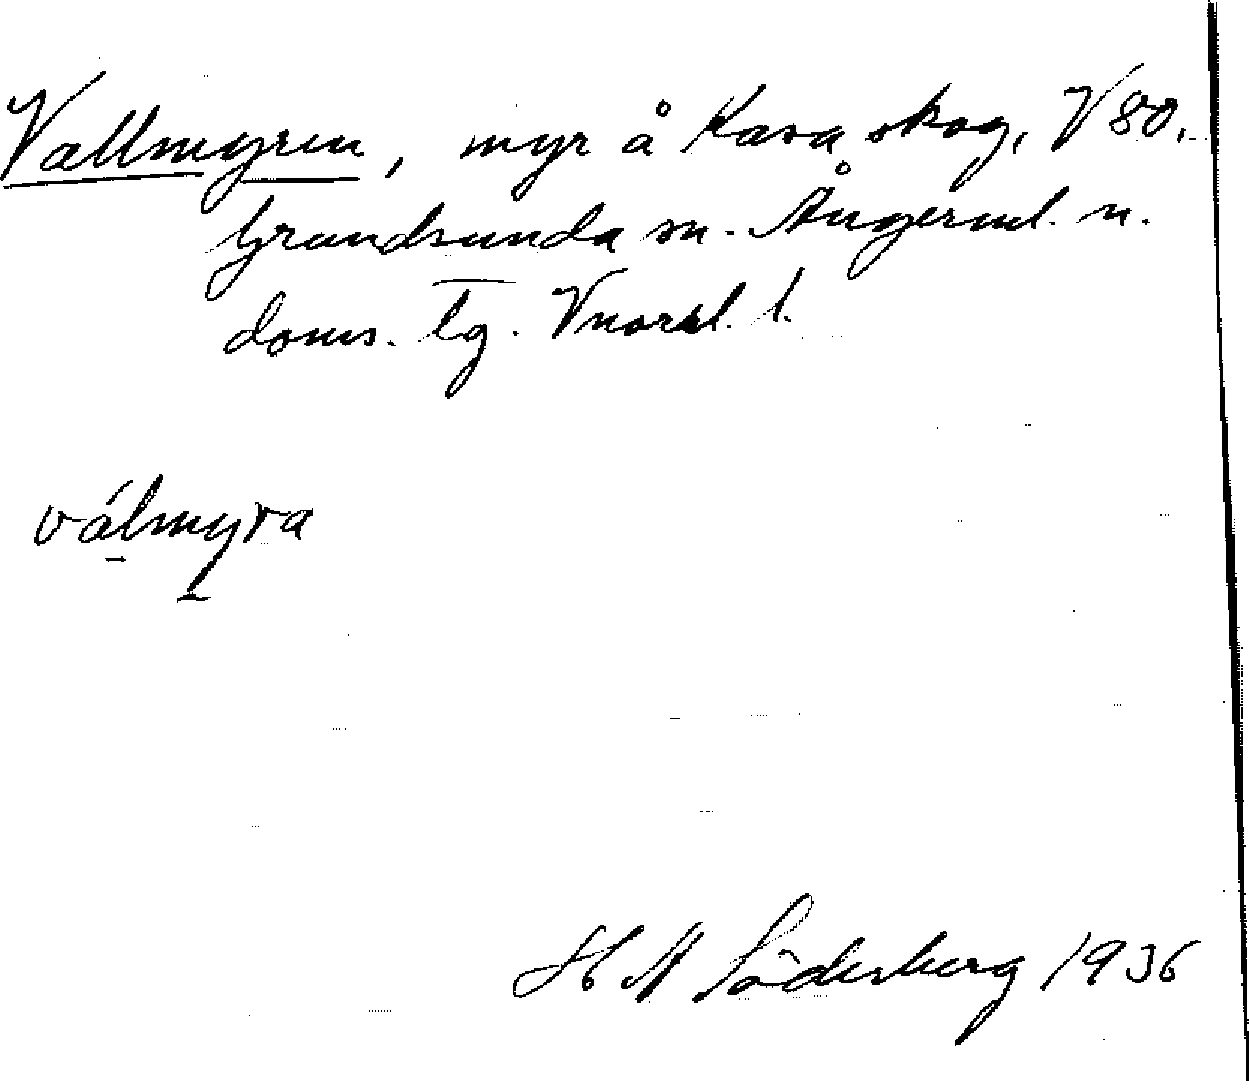 Vallmyren, myr å Kasa skog, V 80.
Grundsunda sn. Ångerml. n.
doms. tg. Vnorrl. l.
válmyra
H A Söderberg 1936